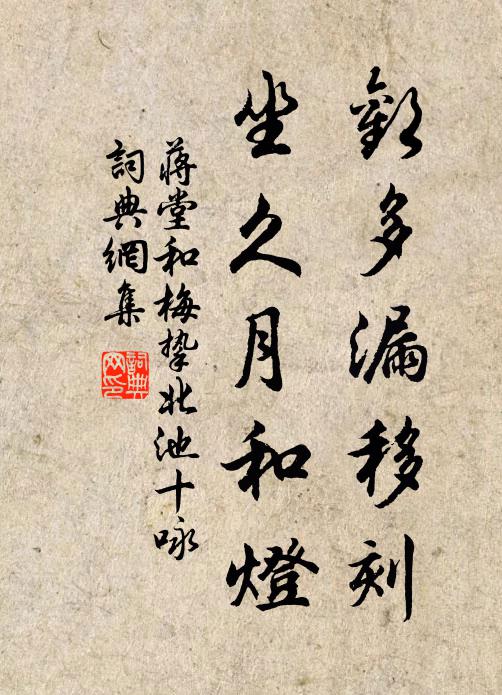 歡多漏移刻
坐久月和燈
蔣堂和梅摯北池十咏
詞典網集
詞典
网印